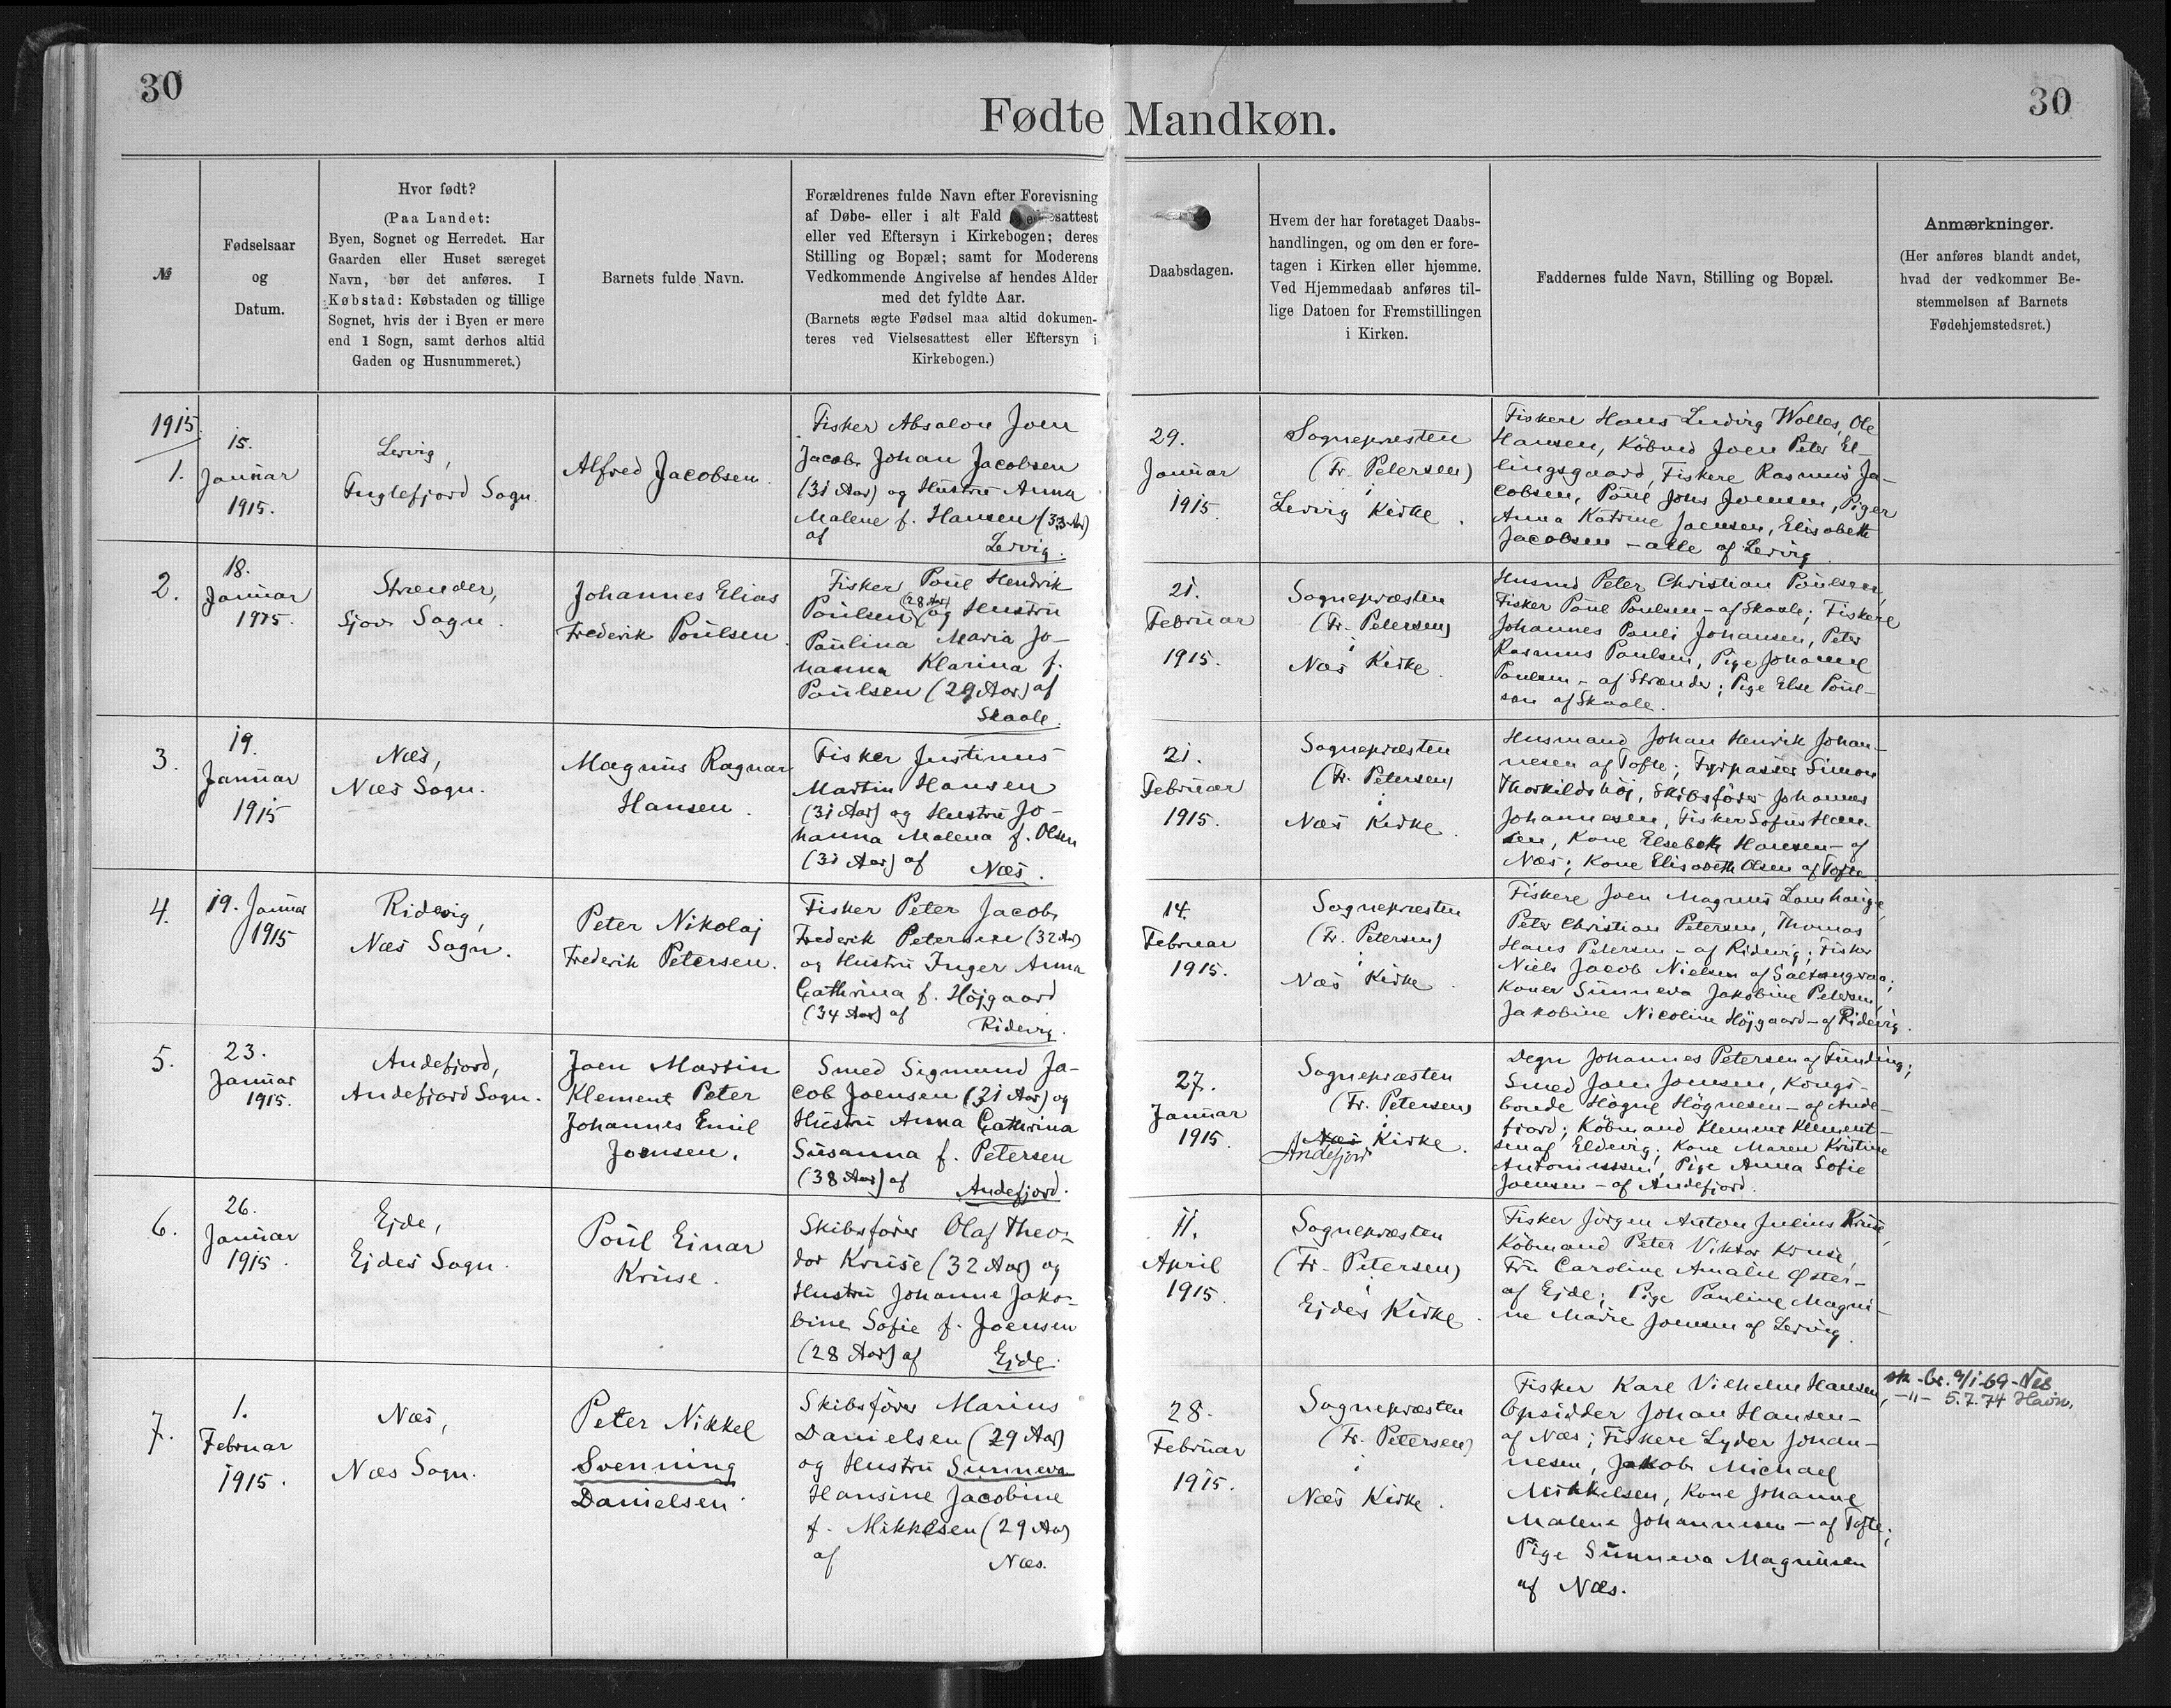 30
30
Fødte Mandkøn.
№
Fødselsaar
og
Datum.
Hvor født?
(Paa Landet:
Byen, Sognet og Herredet. Har
Gaarden eller Huset særeget
Navn, bør det anføres. I
Købstad: Købstaden og tillige
Sognet, hvis der i Byen er mere
end 1 Sogn, samt derhos altid
Gaden og Husnummeret.)
Barnets fulde Navn.
Forældrenes fulde Navn efter Forevisning
af Døbe- eller i alt Fald
eller ved Eftersyn i Kirkebogen; deres
Stilling og Bopæl; samt for Moderens
Vedkommende Angivelse af hendes Alder
med det fyldte Aar.
(Barnets ægte Fødsel maa altid dokumen-
teres ved Vielsesattest eller Eftersyn i
Kirkebogen.)
Daabsdagen.
Hvem der har foretaget Daabs-
handlingen, og om den er fore-
tagen i Kirken eller hjemme.
Ved Hjemmedaab anføres til-
lige Datoen for Fremstillingen
i Kirken.
Faddernes fulde Navn, Stilling og Bopæl.
Anmærkninger.
(Her anføres blandt andet,
hvad der vedkommer Be-
stemmelsen af Barnets
Fødehjemstedsret.)
1915
1.
15.
Januar
1915.
Lervig,
Fuglefjord Sogn.
Alfred Jacobsen.
Fisker Absalon Joen
Jacob Johan Jacobsen
(31 Aar) og Hustru Anna
Malene f. Hansen (33 Aar)
af Lervig.
29.
Januar
1915.
Sognepræsten
(Fr. Petersen)
i
Lervig Kirke.
Fiskere Hans Ludvig Wolles, Ole
Hansen, Købmd Joen Peter El-
lingsgaard, Fiskere Rasmus Ja-
cobsen, Poul Jens Joensen, Piger
Anna Katrine Joensen, Elisabeth
Jacobsen - alle af Lervig
2.
18.
Januar
1915.
Strænder,
Sjov Sogn.
Johannes Elias
Frederik Poulsen.
Fisker Poul Hendrik
Poulsen (28 Aar) og Hustru
Paulina Maria Jo-
hanna Klarina f.
Poulsen (29 Aar) af
Skaale.
21.
Februar
1915.
Sognepræsten
(Fr. Petersen)
i
Næs Kirke.
Husmd Peter Christian Poulsen,
Fisker Poul Poulsen - af Skaale; Fiskere
Johannes Pauli Johansen, Peter
Rasmus Poulsen, Pige Johanne
Poulsen - af Strænder; Pige Else Poul-
sen af Skaale.
3.
19.
Januar
1915
Næs,
Næs Sogn.
Magnus Ragnar
Hansen.
Fisker Justinus
Martin Hansen
(31 Aar) og Hustru Jo-
hanna Malena f. Olsen
(31 Aar) af Næs.
21.
Februar
1915.
Sognepræsten
(Fr. Petersen)
i
Næs Kirke.
Husmand Johan Henrik Johan-
nesen af Tofte; Fyrpasser Simon
Thorkildshøj, Skibsfører Johannes
Johannesen, Fisker Sofus Han-
sen, Kone Elsebeth Hansen - af
Næs; Kone Elisabeth Olsen af Tofte
4.
19. Januar
1915
Ridevig,
Næs Sogn.
Peter Nikolaj
Frederik Petersen.
Fisker Peter Jacob
Frederik Petersen (32 Aar)
og Hustru Inger Anna
Cathrina f. Højgaard
(34 Aar) af Ridevig.
14.
Februar
1915.
Sognepræsten
(Fr. Petersen)
i
Næs Kirke.
Fiskere Joen Magnus Lamhauge,
Peter Christian Petersen, Thomas
Hans Petersen - af Ridevig; Fisker
Niels Jacob Nielsen af Saltangeraa;
Koner Sunneva Jakobine Petersen,
Jakobine Nicoline Højgaard - af Ridevig.
5.
23.
Januar
1915.
Andefjord,
Andefjord Sogn.
Joen Martin
Klement Peter
Johannes Emil
Joensen.
Smed Sigmund Ja-
cob Joensen (31 Aar) og
Hustru Anna Cathrina
Susanna f. Petersen
(38 Aar) af Andefjord.
27.
Januar
1915.
Sognepræsten
(Fr. Petersen)
i
Næs Kirke.
Andefjord
Degn Johannes Petersen af Funding;
Smed Joen Joensen, Kongs-
bonde Högne Högnesen - af Ande-
fjord; Købmand Klement Klement-
sen af Eldevig; Kone Maren Kristine
Antoniussen, Pige Anna Sofie
Joensen - af Andefjord.
6.
26.
Januar
1915.
Ejde,
Ejdes Sogn.
Poul Einar
Kruse.
Skibsfører Olaf Theo-
dor Kruse (32 Aar) og
Hustru Johanne Jako-
bine Sofie f. Joensen
(28 Aar) af Ejde.
11.
April
1915.
Sognepræsten
(Fr. Petersen)
i
Ejdes Kirke.
Fisker Jörgen Anton Julius Kruse,
Købmand Peter Viktor Kruse,
Fru Caroline Amalie Øster-
af Ejde; Pige Pauline Magni-
ne Marie Joensen af Lervig.
7.
1.
Februar
1915.
Næs,
Næs Sogn.
Peter Nikkel
Svenning
Danielsen
Skibsfører Marius
Danielsen (29 Aar)
og Hustru Sunneva
Hansine Jacobine
f. Mikkelsen (29 Aar)
af Næs.
28.
Februar
1915.
Sognepræsten
(Fr. Petersen)
i
Næs Kirke.
Fisker Karl Vilhelm Hansen,
Opsidder Johan Hansen -
af Næs; Fiskere Lyder Johan-
nesen, Jakob Michael
Mikkelsen, Kone Johanne
Malene Johannesen - af Tofte;
Pige Sunneva Magnusen
af Næs.
-"- 5.7.74 Havn.